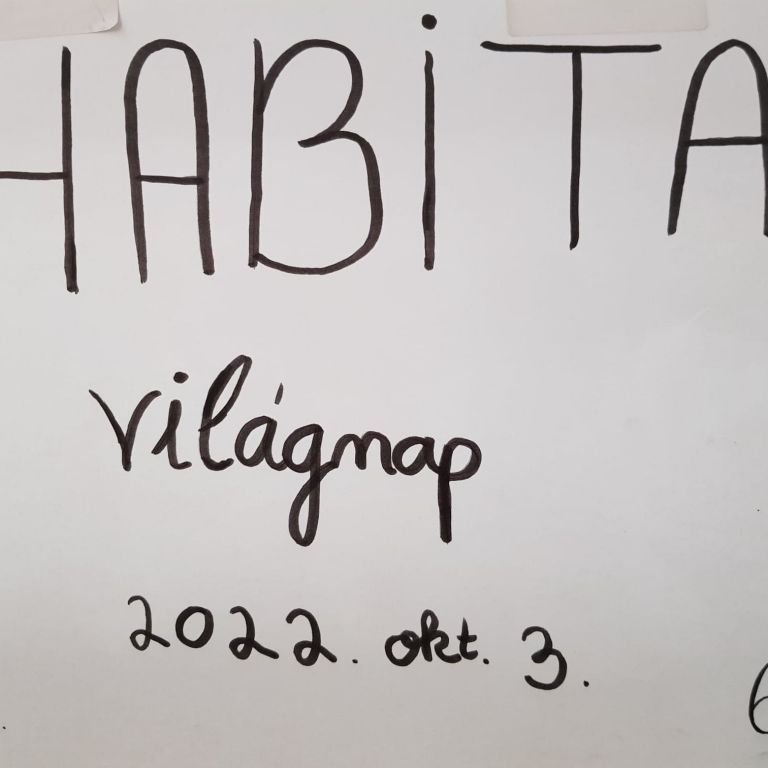 HABİTA
világnap
2022. okt. 3.